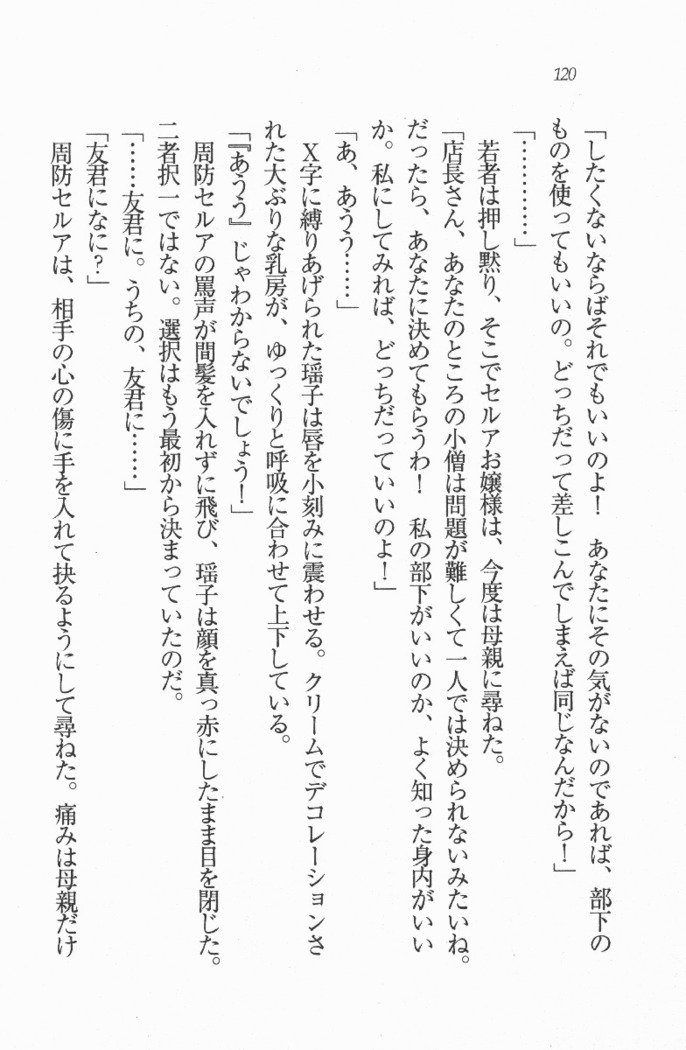 120
「したくないならばそれでもいいのよ！　あなたにその気がないのであれば、部下の
ものを使ってもいいの。どっちだって差しこんでしまえば同じなんだから！」
「…………」
若者は押し黙り、そこでセルアお嬢様は、今度は母親に尋ねた。
「店長さん、あなたのところの小僧は問題が難しくて一人では決められないみたいね。
だったら、あなたに決めてもらうわ！　私の部下がいいのか、よく知った身内がいい
か。私にしてみれば、どっちだっていいのよ！」
「あ、あうう……」
X字に縛りあげられた瑶子は唇を小刻みに震わせる。クリームでデコレーションさ
れた大ぶりな乳房が、ゆっくりと呼吸に合わせて上下している。
「『あうう』じゃわからないでしょう！」
周防セルアの罵声が間髪を入れずに飛び、瑶子は顔を真っ赤にしたまま目を閉じた。
二者択一ではない。選択はもう最初から決まっていたのだ。
「……友君に。うちの、友君に……」
「友君になに？」
周防セルアは、相手の心の傷に手を入れて抉るようにして尋ねた。痛みは母親だけ